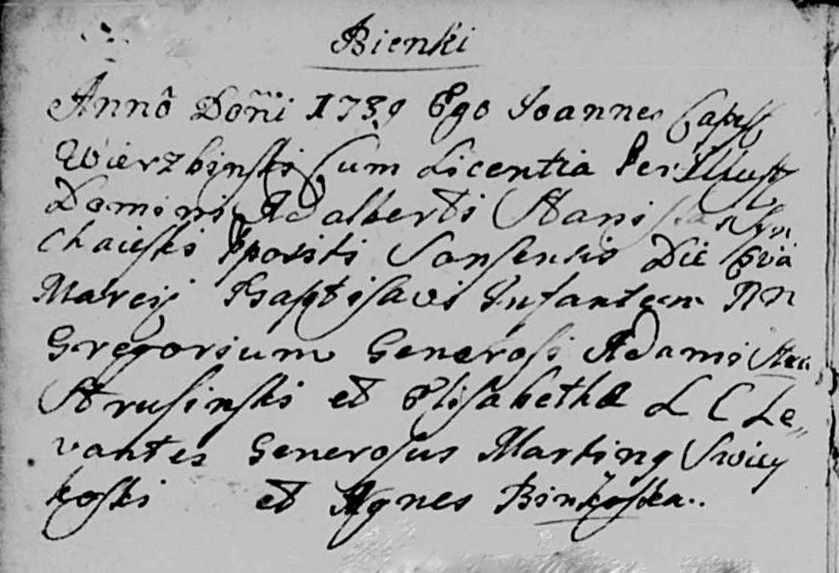 Bienki
Anno Dom̃i 1739 Ego Joannes
Wierzbinski Cum Licentia Perillust
Domini Adalberti
Chaieski Ppositi Sonsensis Die 6ta
Marcij Baptisavi Infantem NN
Gregorium Generosi Adami
Strusinski et Elisabethæ L C Le„
vantes Generosus Martinq Swiey
koski et Agnes Binkoska..